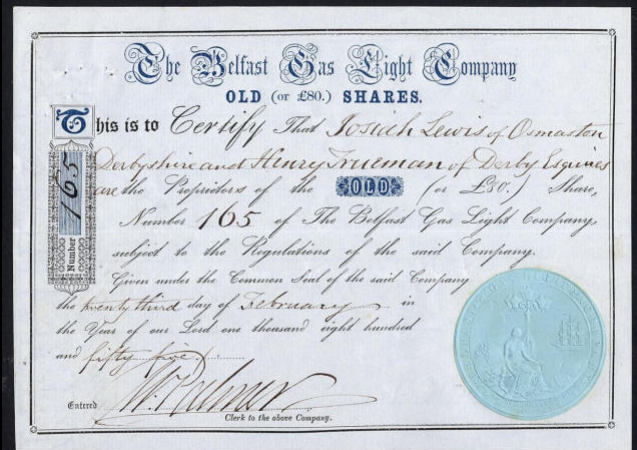 The Belfast Gas Light Company
OLD (or £80.) SHARES.
This is to Certify That Josiah Lewis of Osmaston
Derbyshire and Henry Trueman of Derby Esquires
are the Proprietors of the OLD (or £80.) Share,
Number 165 of The Belfast Gas Light Company,
subject to the Regulations of the said Company.
Given under the Common Seal of the said Company
the twenty third day of February in
the Year of our Lord one thousand eight hundred
and fifty five.
Entered
Clerk to the above Company.
Number 165